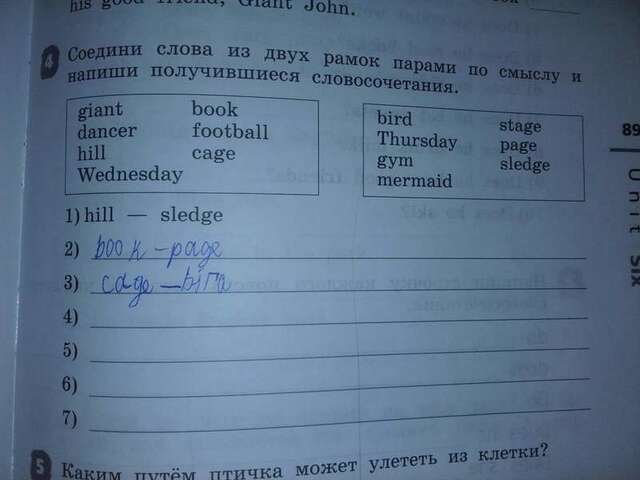 his good friend, Giant John.
4 Соедини слова из двух рамок парами по смыслу и
напиши получившиеся словосочетания.
giant book
dancer football
hill cage
Wednesday
bird stage
Thursday page
gym sledge
mermaid
89
Unit Six
1) hill — sledge
2) book - page
3) cage — bird
4)
5)
6)
7)
5 Каким путём птичка может улететь из клетки?